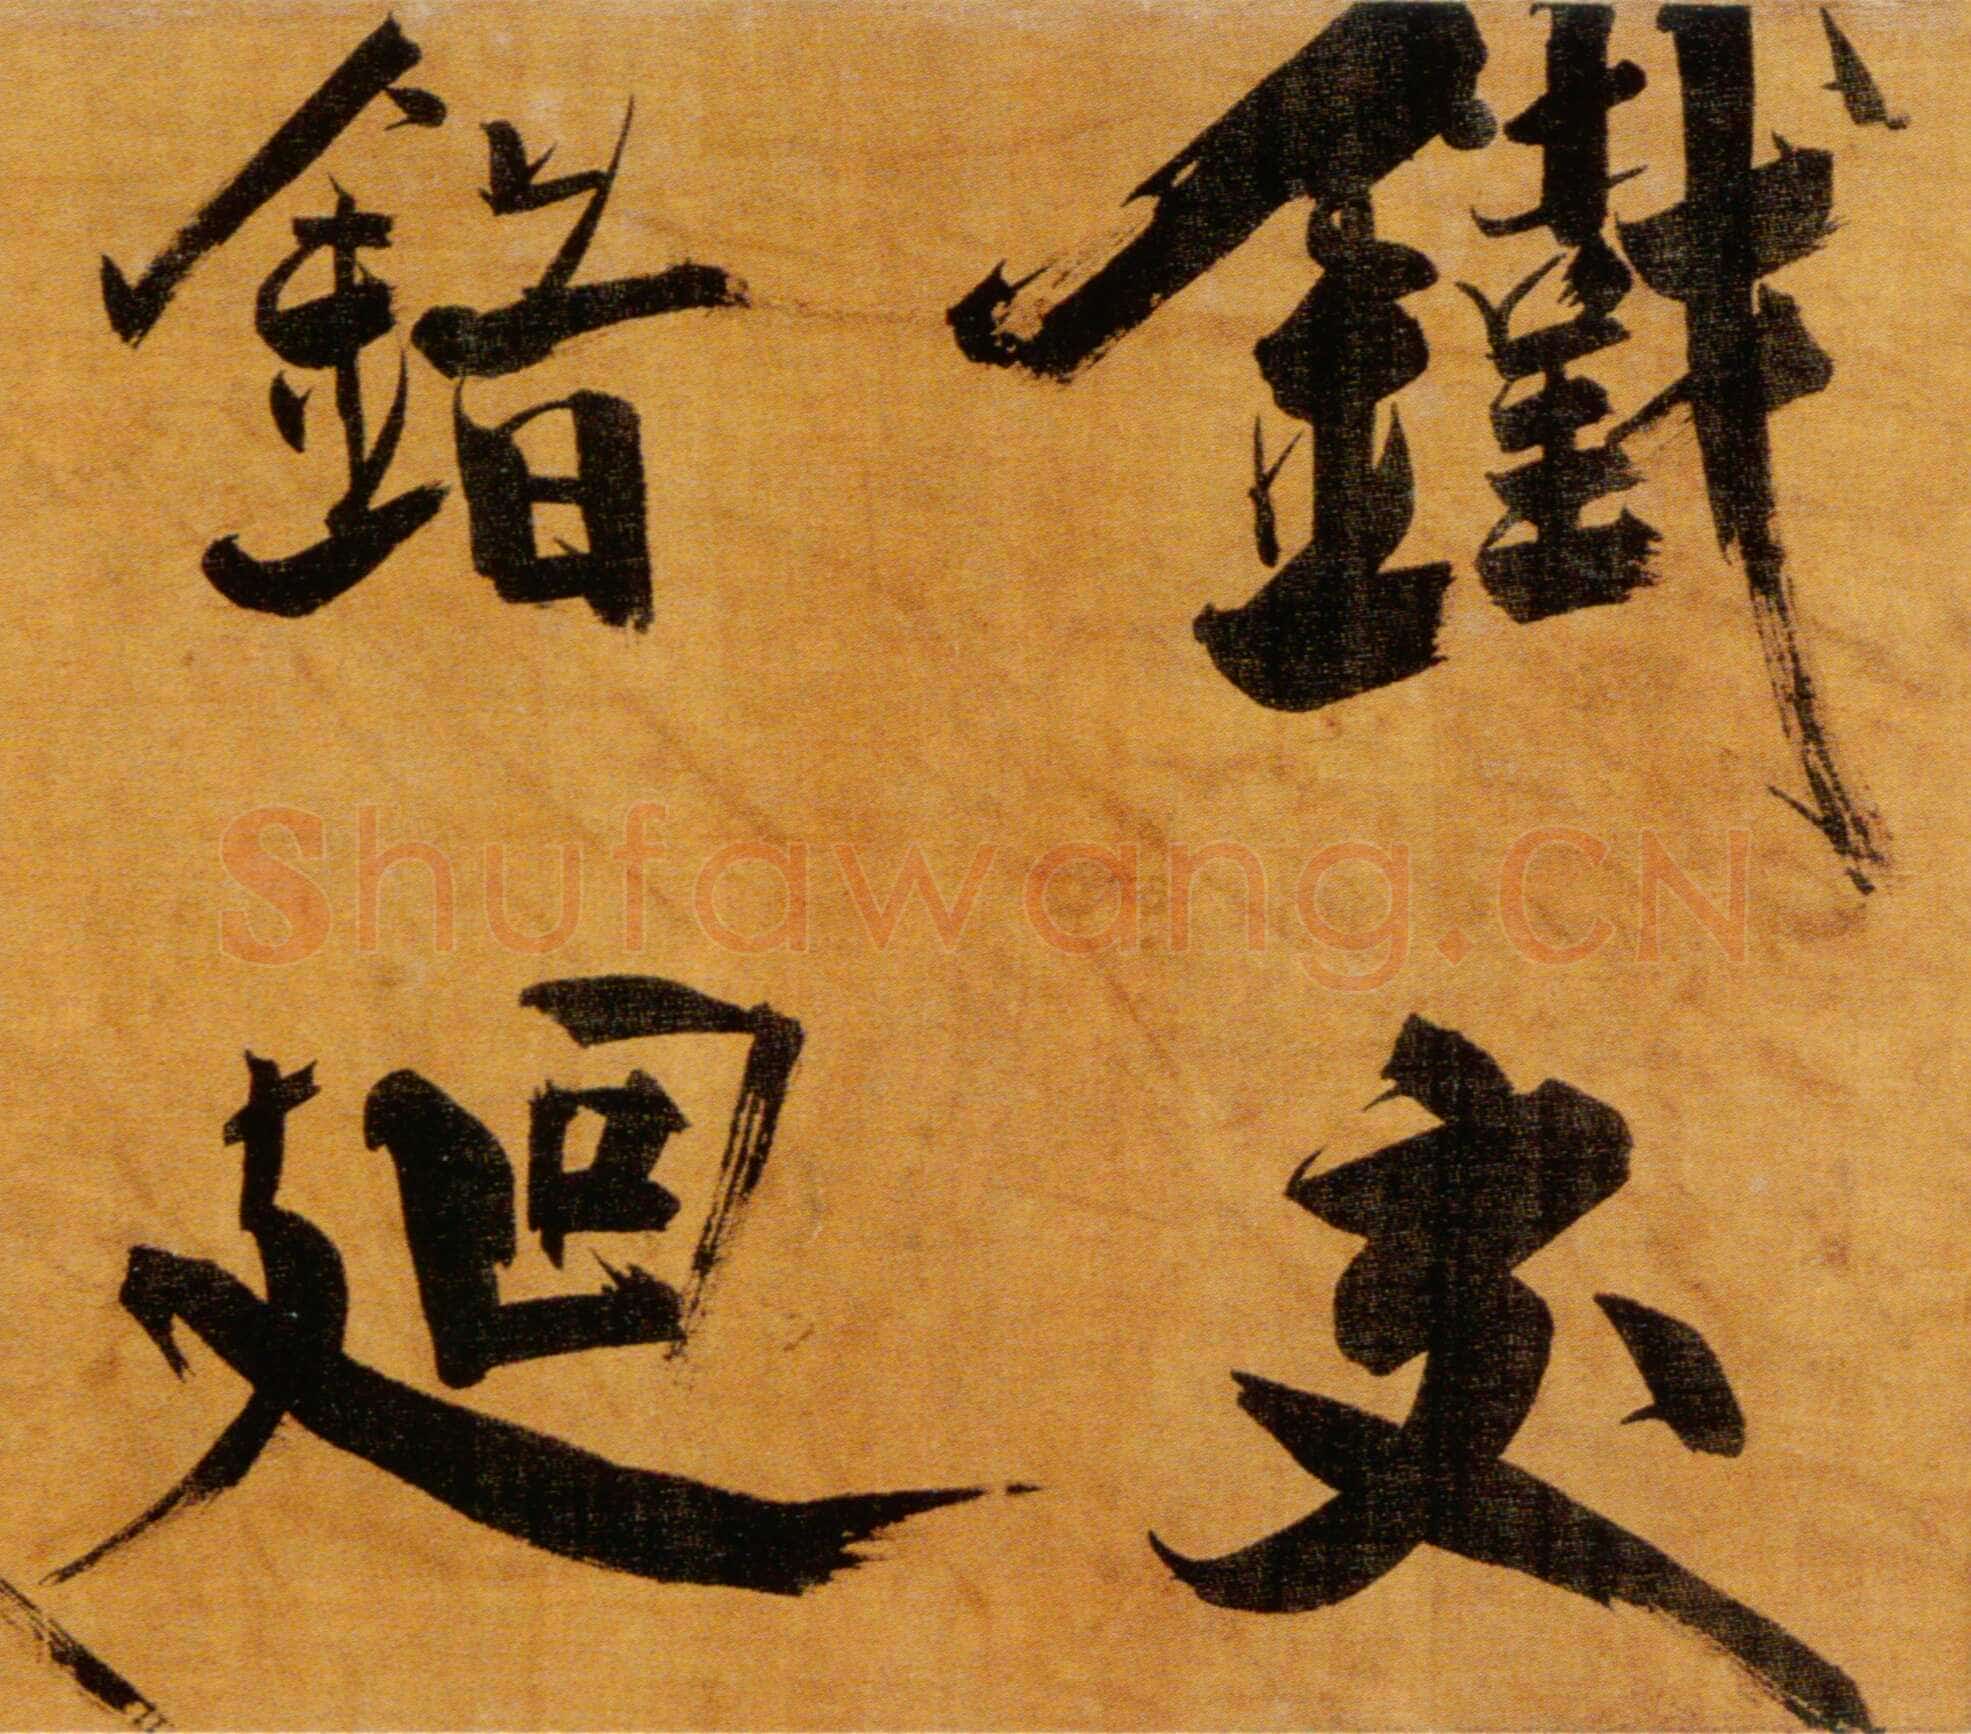 鐵
錯廻
Shufawang.CN